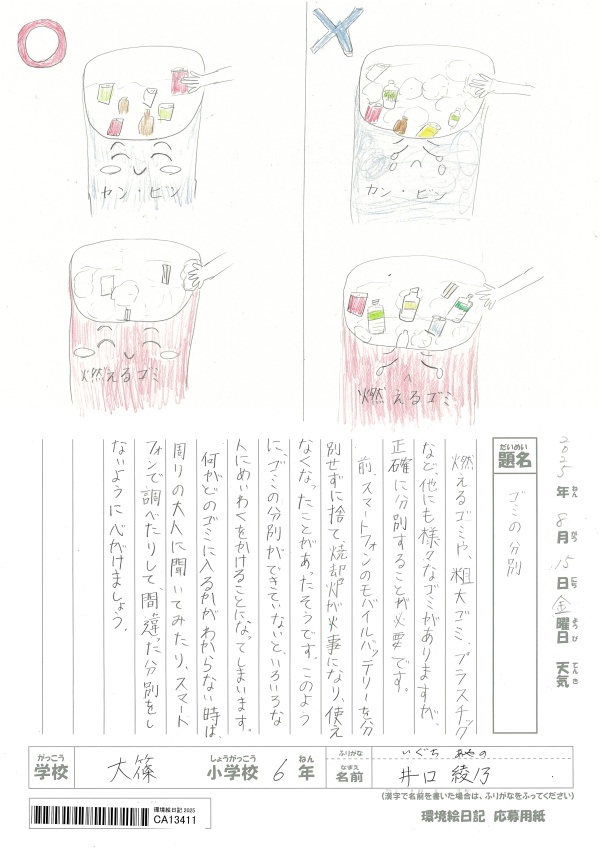 カン・ビン
カン・ビン
燃えるゴミ
燃えるゴミ
2025年ねん8月がつ15日にち金曜日ようび 天気てんき
題名だいめい
ゴミの分別
燃えるゴミや、粗大ゴミ、プラスチック
など、他にも様々なゴミがありますが、
正確に分別することが必要です。
前、スマートフォンのモバイルバッテリーを分
別せずに捨て、焼却炉が火事になり、使え
なくなったことがあったそうです。このよう
に、ゴミの分別ができていないと、いろいろな
人にめいわくをかけることになってしまいます。
何がどのゴミに入るかがわからない時は、
周りの大人に聞いてみたり、スマート
フォンで調べたりして、間違った分別をし
ないように心がけましょう。
がっこう しょうがっこう ねん ふりがな いぐち あやの
学校 大篠 小学校 6年 なまえ 名前 井口 綾乃
(漢字で名前を書いた場合は、ふりがなをふってください)
環境絵日記 応募用紙
環境絵日記 2025
CA13411